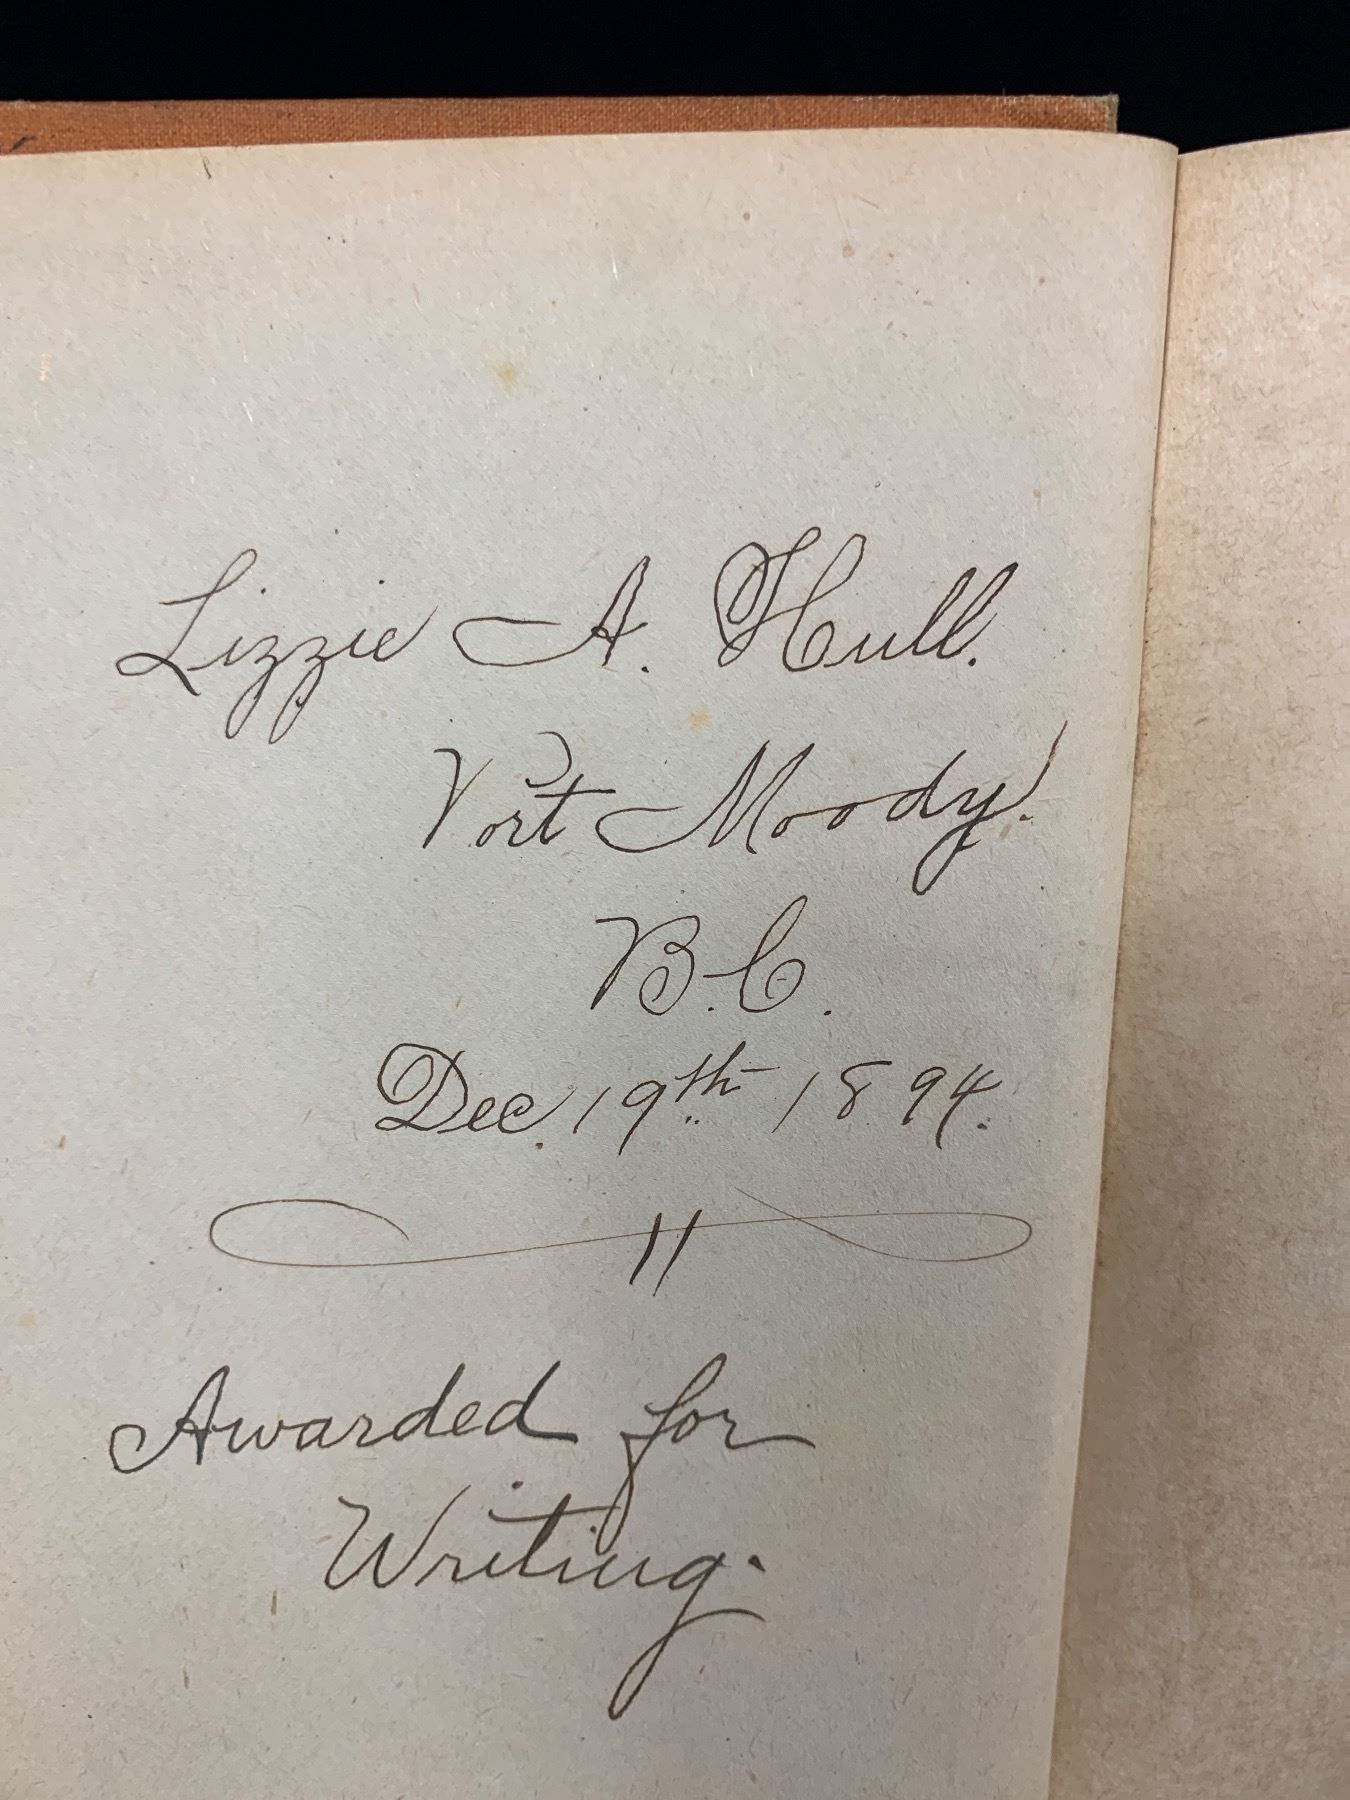 Lizzie A. Hull.
Port Moody.
B.C.
Dec. 19th 1894.
Awarded for
Writing.